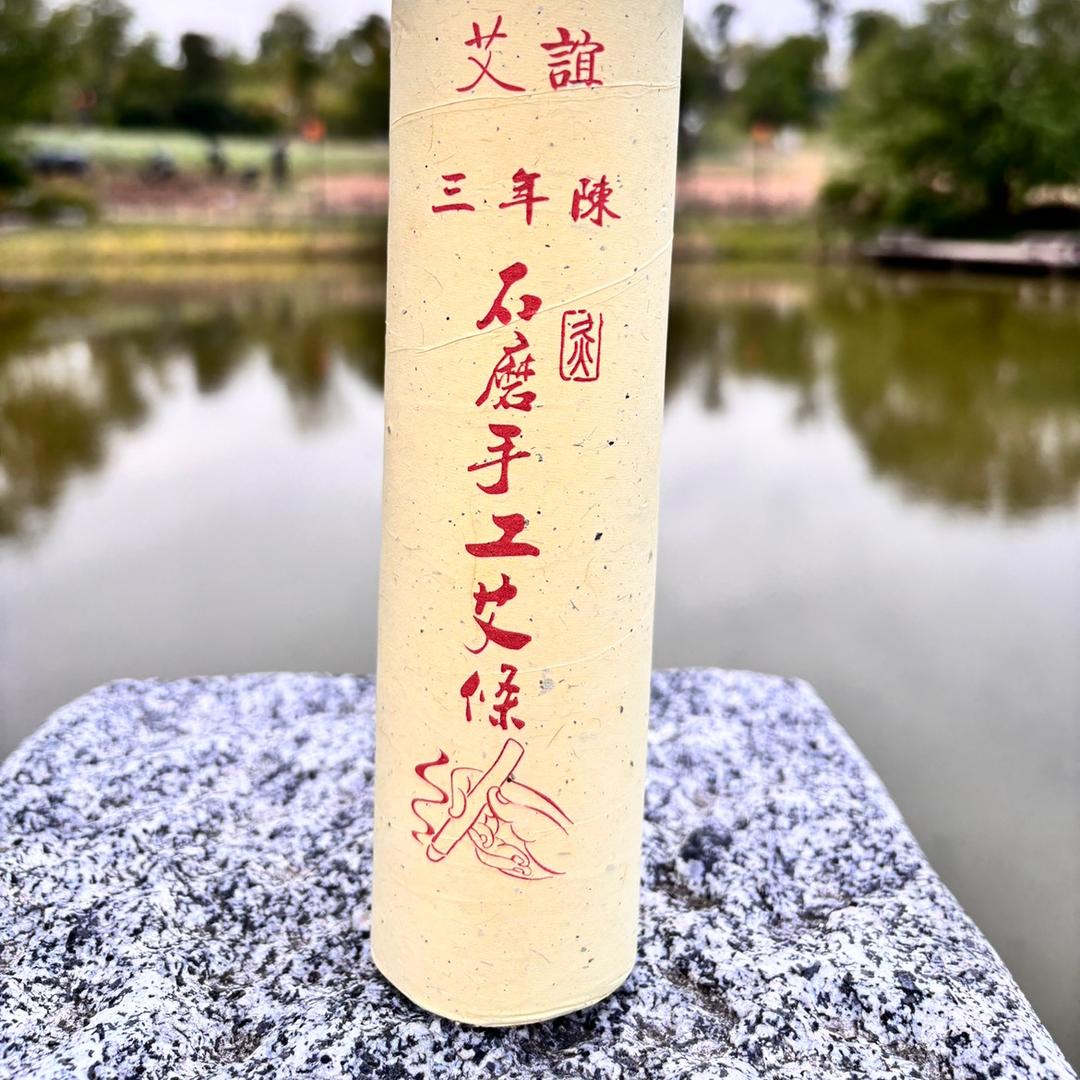 艾誼
三年陳
石磨手工艾條
灸